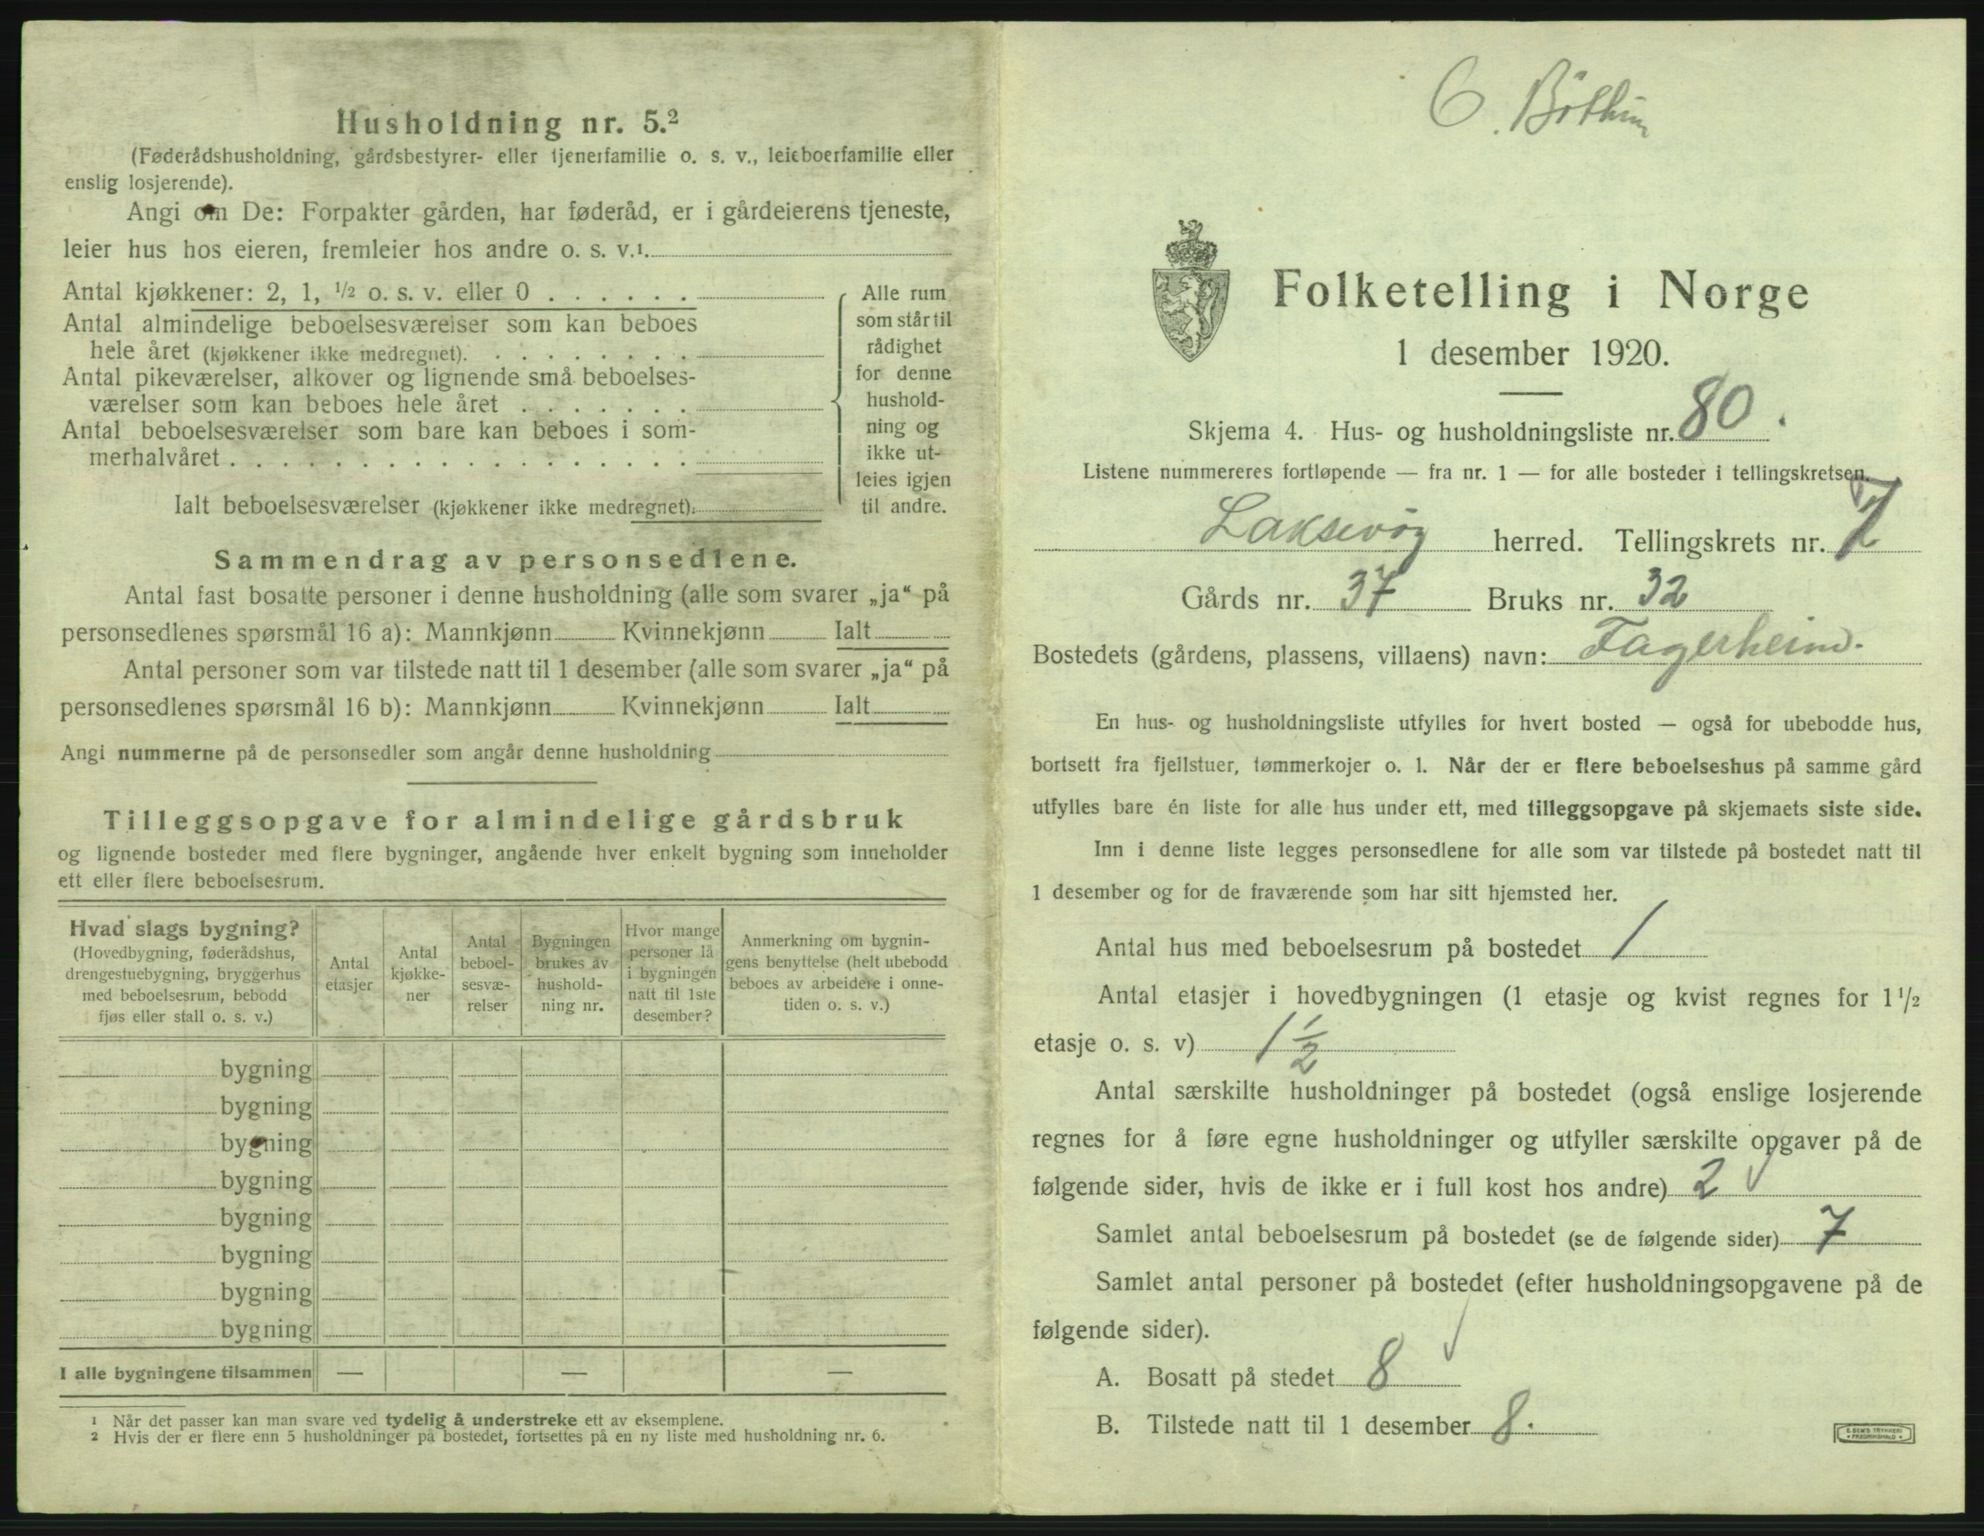 Husholdning nr. 5.²
(Føderådshusholdning, gårdsbestyrer- eller tjenerfamilie o. s. v., leieboerfamilie eller
enslig losjerende).
Angi om De: Forpakter gården, har føderåd, er i gårdeierens tjeneste,
leier hus hos eieren, fremleier hos andre o. s. v.¹
Antal kjøkkener: 2, 1, ½ o. s. v. eller 0
Antal almindelige beboelsesværelser som kan beboes
hele året (kjøkkener ikke medregnet).
Antal pikeværelser, alkover og lignende små beboelses-
værelser som kan beboes hele året
Antal beboelsesværelser som bare kan beboes i som-
merhalvåret
Ialt beboelsesværelser (kjøkkener ikke medregnet):
Alle rum
som står til
rådighet
for denne
hushold-
ning og
ikke ut-
leies igjen
til andre.
Sammendrag av personsedlene.
Antal fast bosatte personer i denne husholdning (alle som svarer „ja“ på
personsedlenes spørsmål 16 a): Mannkjønn Kvinnekjønn Ialt
Antal personer som var tilstede natt til 1 desember (alle som svarer „ja“ på
personsedlenes spørsmål 16 b): Mannkjønn Kvinnekjønn Ialt
Angi nummerne på de personsedler som angår denne husholdning
Tilleggsopgave for almindelige gårdsbruk
og lignende bosteder med flere bygninger, angående hver enkelt bygning som inneholder
ett eller flere beboelsesrum.
Hvad slags bygning?
(Hovedbygning, føderådshus,
drengestuebygning, bryggerhus
med beboelsesrum, bebodd
fjøs eller stall o. s. v.)
Antal
etasjer
Antal
kjøkke-
ner
Antal
beboel-
sesvæ-
relser
Bygningen
brukes av
hushold-
ning nr.
Hvor mange
personer lå
i bygningen
natt til 1ste
desember?
Anmerkning om bygnin-
gens benyttelse (helt ubebodd
beboes av arbeidere i onne-
tiden o. s. v.)
bygning
bygning
bygning
bygning
bygning
bygning
bygning
bygning
I alle bygningene tilsammen — — —
¹ Når det passer kan man svare ved tydelig å understreke ett av eksemplene.
² Hvis der er flere enn 5 husholdninger på bostedet, fortsettes på en ny liste med husholdning nr. 6.
Folketelling i Norge
1 desember 1920.
Skjema 4. Hus- og husholdningsliste nr. 80.
Listene nummereres fortløpende — fra nr. 1 — for alle bosteder i tellingskretsen.
Laksevåg herred. Tellingskrets nr. 7
Gårds nr. 37 Bruks nr. 32
Bostedets (gårdens, plassens, villaens) navn: Fagerheim.
En hus- og husholdningsliste utfylles for hvert bosted — også for ubebodde hus,
bortsett fra fjellstuer, tømmerkojer o. l. Når der er flere beboelseshus på samme gård
utfylles bare én liste for alle hus under ett, med tilleggsopgave på skjemaets siste side.
Inn i denne liste legges personsedlene for alle som var tilstede på bostedet natt til
1 desember og for de fraværende som har sitt hjemsted her.
Antal hus med beboelsesrum på bostedet 1
Antal etasjer i hovedbygningen (1 etasje og kvist regnes for 1½
etasje o. s. v) 1½
Antal særskilte husholdninger på bostedet (også enslige losjerende
regnes for å føre egne husholdninger og utfyller særskilte opgaver på de
følgende sider, hvis de ikke er i full kost hos andre) 2
Samlet antal beboelsesrum på bostedet (se de følgende sider) 7
Samlet antal personer på bostedet (efter husholdningsopgavene på de
følgende sider).
A. Bosatt på stedet 8
B. Tilstede natt til 1 desember 8.